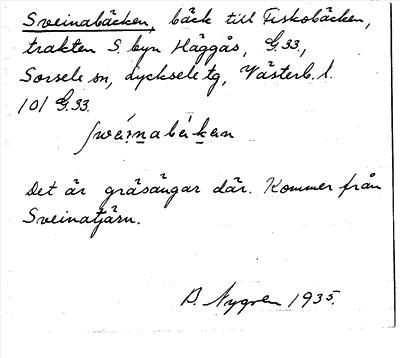 Sveinabäcken, bäck till Fiskobäcken,
trakten S. byn Häggås, G.33.,
Sorsele sn, Lycksele tg, Västerb. l.
101 G.33.
Det är gräsängar där. Kommer från
Sveinatjärn.
B. Nygren 1935.